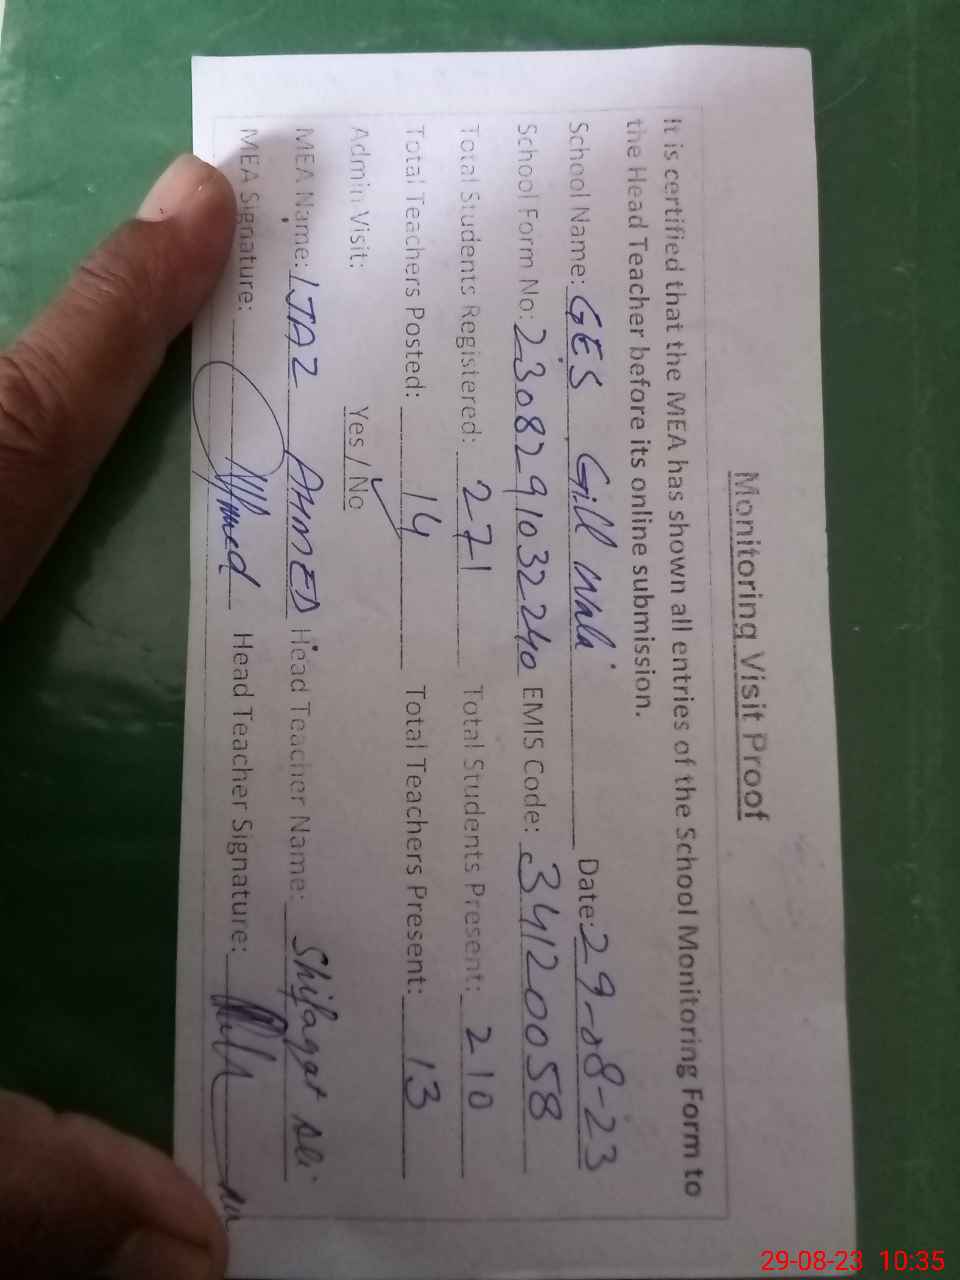 Monitoring Visit Proof
It is certified that the MEA has shown all entries of the School Monitoring Form to
the Head Teacher before its online submission.
School Name: GES Gill Wali Date: 29-08-23
School Form No: 2308291032240 EMIS Code: 34120058
Total Students Registered: 271 Total Students Present: 210
Total Teachers Posted: 14 Total Teachers Present: 13
Admin Visit: Yes / No
MEA Name: IJAZ AHMED Head Teacher Name: Shifaqat Ali
MEA Signature: Ahmed Head Teacher Signature:
29-08-23 10:35